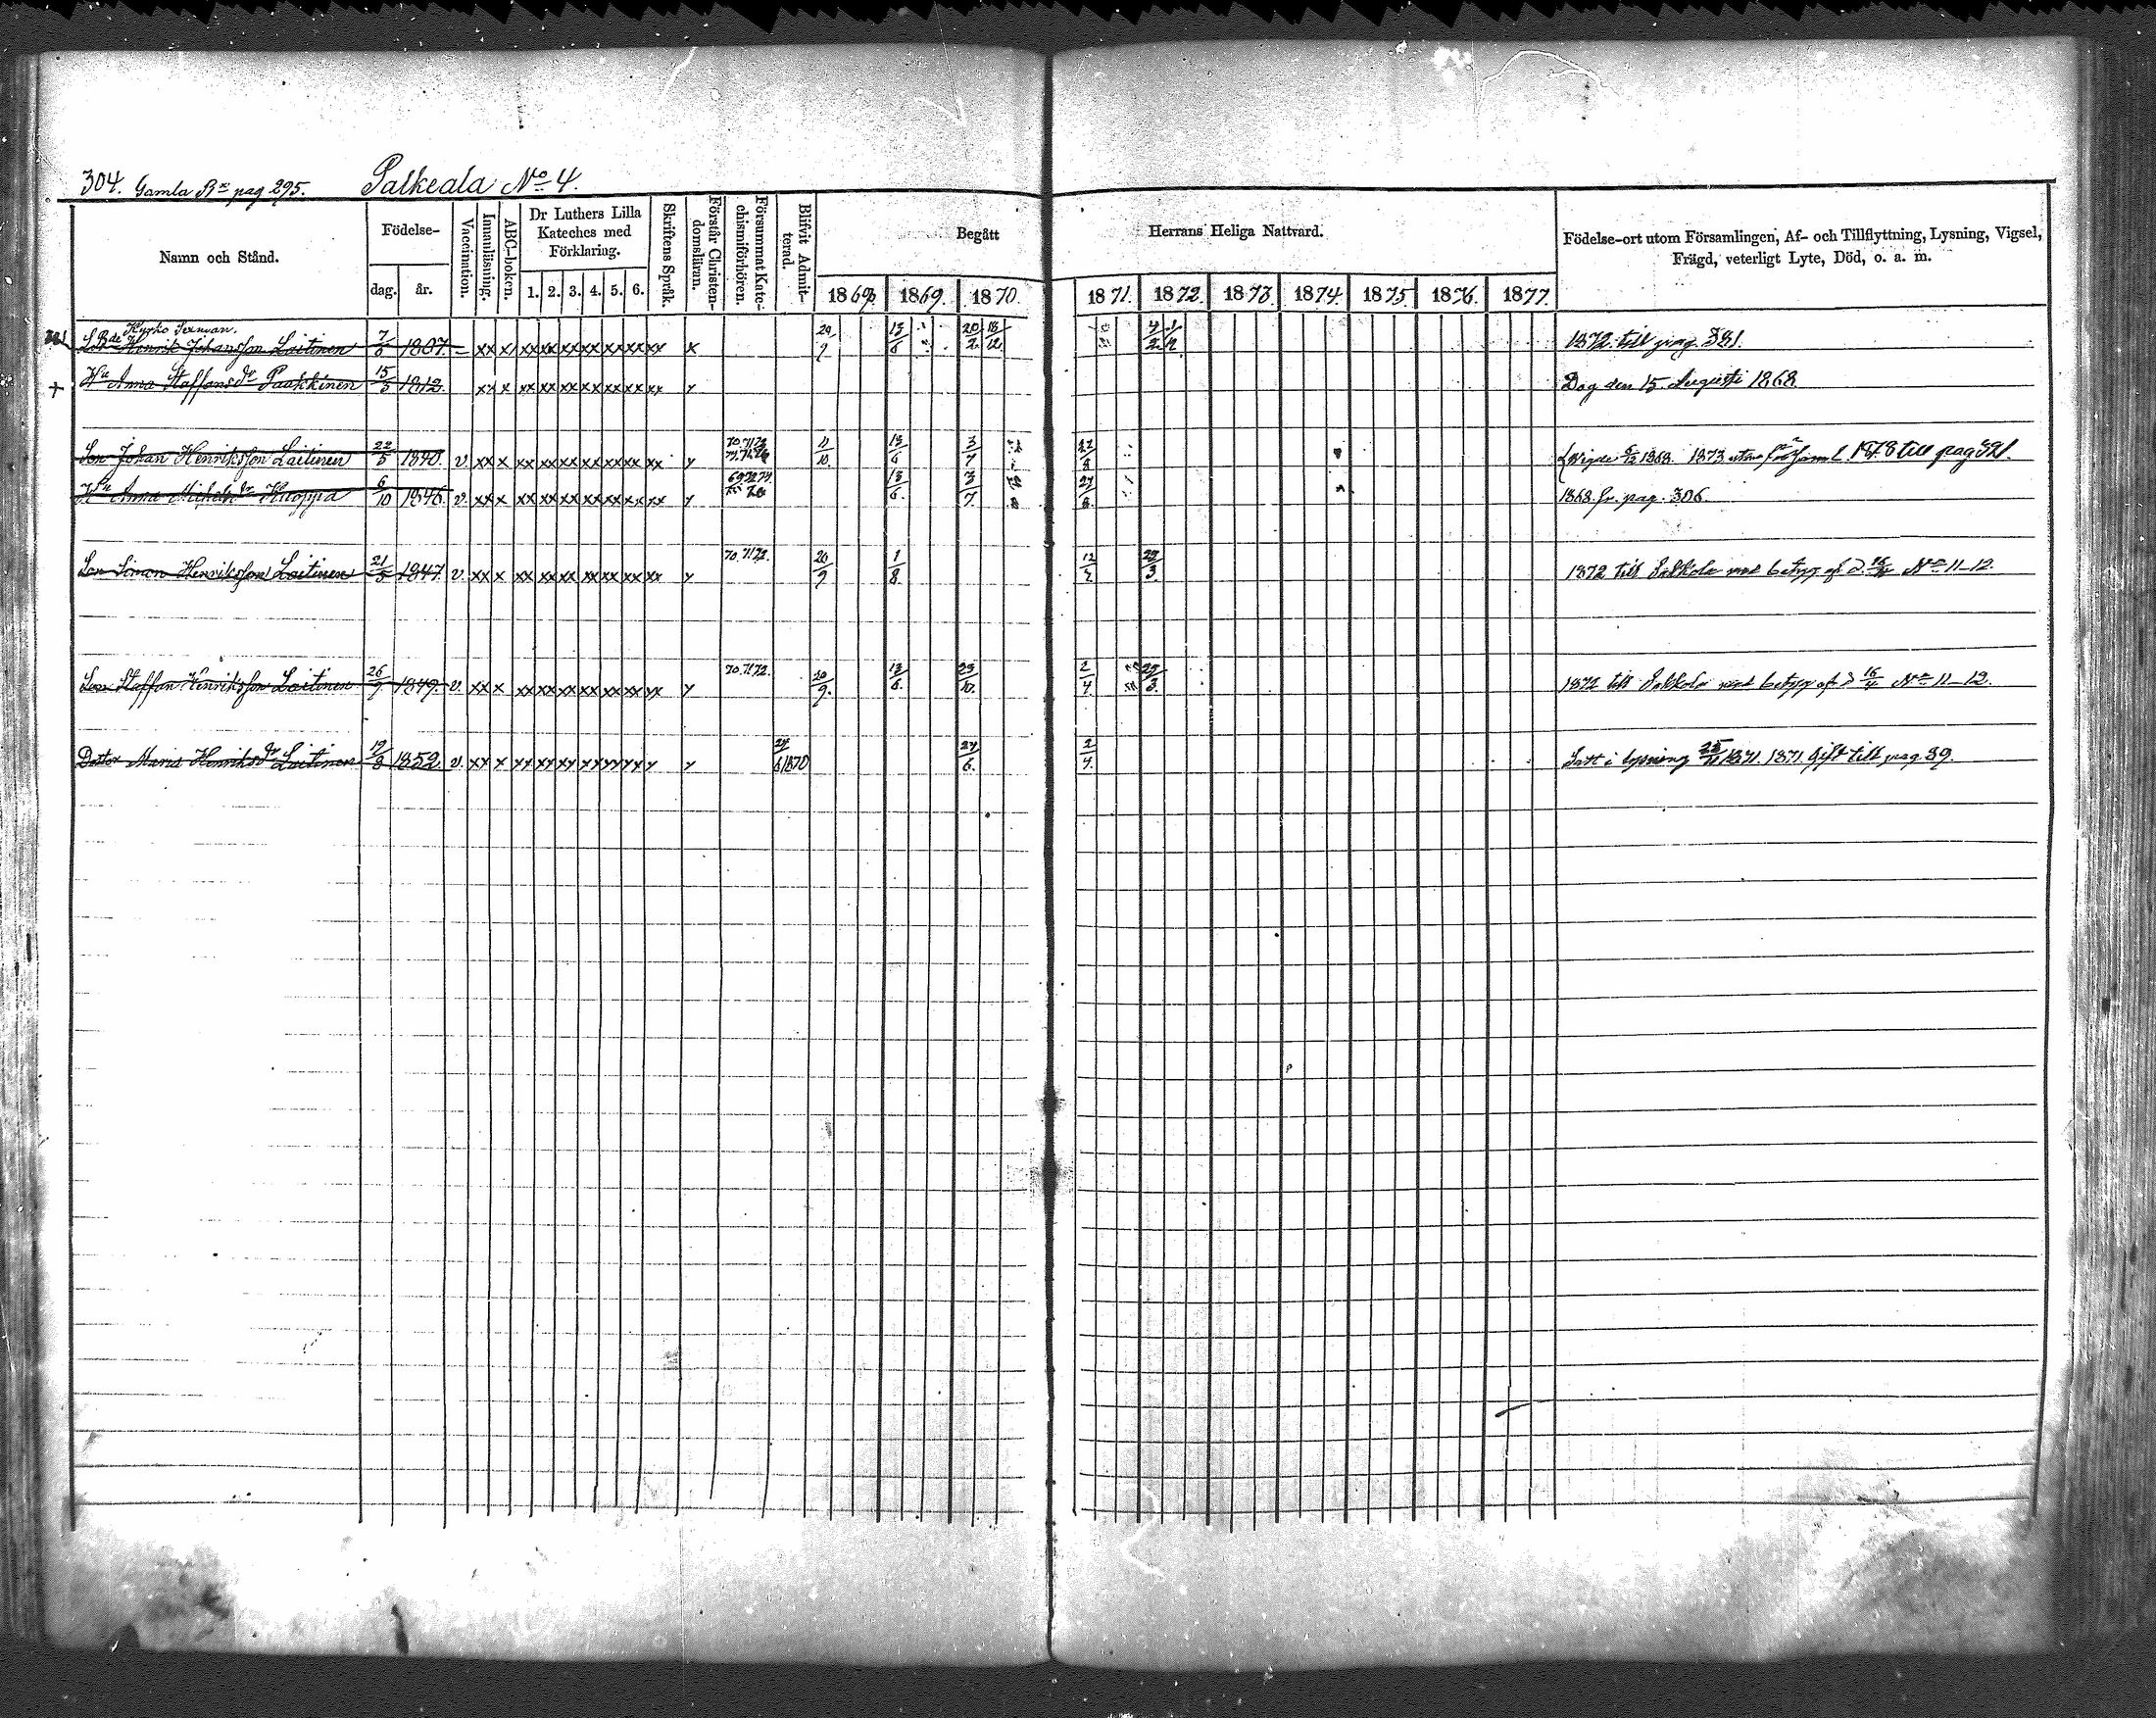 304. Gamla Rx pag 295. Palkeala No 4.
Namn och Stånd. Födelse- dag. år. Vaccination. Innanläsning. ABC-boken. Dr Luthers Lilla Kateches med Förklaring. 1. 2. 3. 4. 5. 6. Skriftens Språk. Förstår Christendomsläran. Försummat Katechismiförhören. Blifvit Admitterad. Begått Herrans Heliga Nattvard. 1869 1870. 1871. 1872. 1873. 1874 1875. 1876. 1877. Födelse-ort utom Församlingen, Af- och Tillflyttning, Lysning, Vigsel, Frägd, veterligt Lyte, Död, o. a. m.
Kyrko
Henrik Johansson Laitinen 7/8 1807. – xx x xx xx xx xx xx xx xx x 20/9 13/6 20/2 13/12 4/2 1/12 1872 till pag. 321.
+ Hu Anna Staffansdr Paakkinen 15/5 1812. xx x xx xx xx xx xx xx xx y Dog den 15 Augusti 1868
Son Johan Henriksson Laitinen 22/5 1840. v xx x xx xx xx xx xx xx xx y 70.71.72 11/10. 13/6 3/7 27/8 Vigde 6/12 1868. 1873 utom församl. 1878 till pag 321.
Hu Anna Michelsdr Kuoppa 6/10 1846. v. xx x xx xx xx xx xx xx xx y 13/6. 3/7. 27/8. 1868 fr. pag. 306.
Son Simon Henriksson Laitinen 21/5 1847 v. xx x xx xx xx xx xx xx xx y 70.71.72. 20/9 1/8. 12/2 25/3 1872 till Sakkola med betyg af d. 16/4 No 11–12.
Son Staffan Henriksson Laitinen 26/9 1849. v. xx x xx xx xx xx xx xx xx y 70.71.72. 20/9. 13/6. 23/10. 2/4 25/3. 1872 till Sakkola med betyg af d 16/4 No 11–12.
Dotter Maria Henriksdr Laitinen 19/8 1852 v. xx x xx xx xx xx xx xx y y 24/6 1870 24/6. 2/4. Satt i lysning 1871. 1871. Gift till pag. 39.